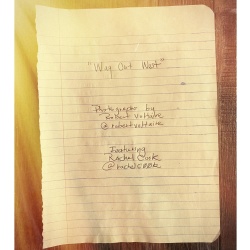 "Way Out West"
Photographs by
Robert Voltaire
@robertvoltaire
Featuring
Rachel Cook
@rachelcook